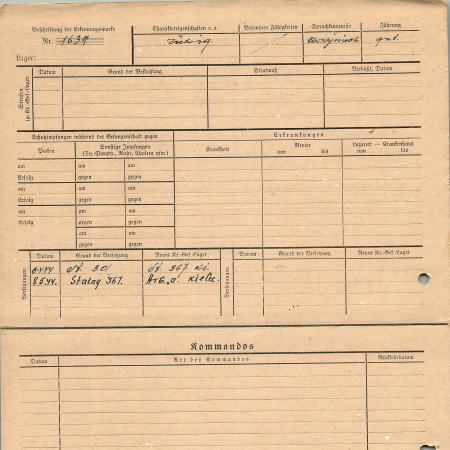 Beschriftung der Erkennungsmarke
Nr. 1639
Lager:
Charaktereigenschaften u. a.
ruhig.
Besondere Fähigkeiten
Sprachkenntnisse
Führung
gut.
Strafen im Kr.-Gef.-Lager
Datum
Grund der Bestrafung
Strafmaß
Verbüßt, Datum
Schutzimpfungen während der Gefangenschaft gegen
Erkrankungen
Pocken
Sonstige Impfungen
(Ty.-Paraty., Ruhr, Cholera usw.)
Krankheit
Revier
von bis
Lazarett – Krankenhaus
von bis
am am am
Erfolg gegen gegen
am am am
Erfolg gegen gegen
am am am
Erfolg gegen gegen
am am am
gegen gegen
am am
gegen gegen
Versetzungen
Datum
Grund der Versetzung
Neues Kr.-Gef.-Lager
Versetzungen
Datum
Grund der Versetzung
Neues Kr.-Gef.-Lager
St. 367
8.5.44. Stalag 367.
Kommandos
Datum
Art des Kommandos
Rückkehrdatum